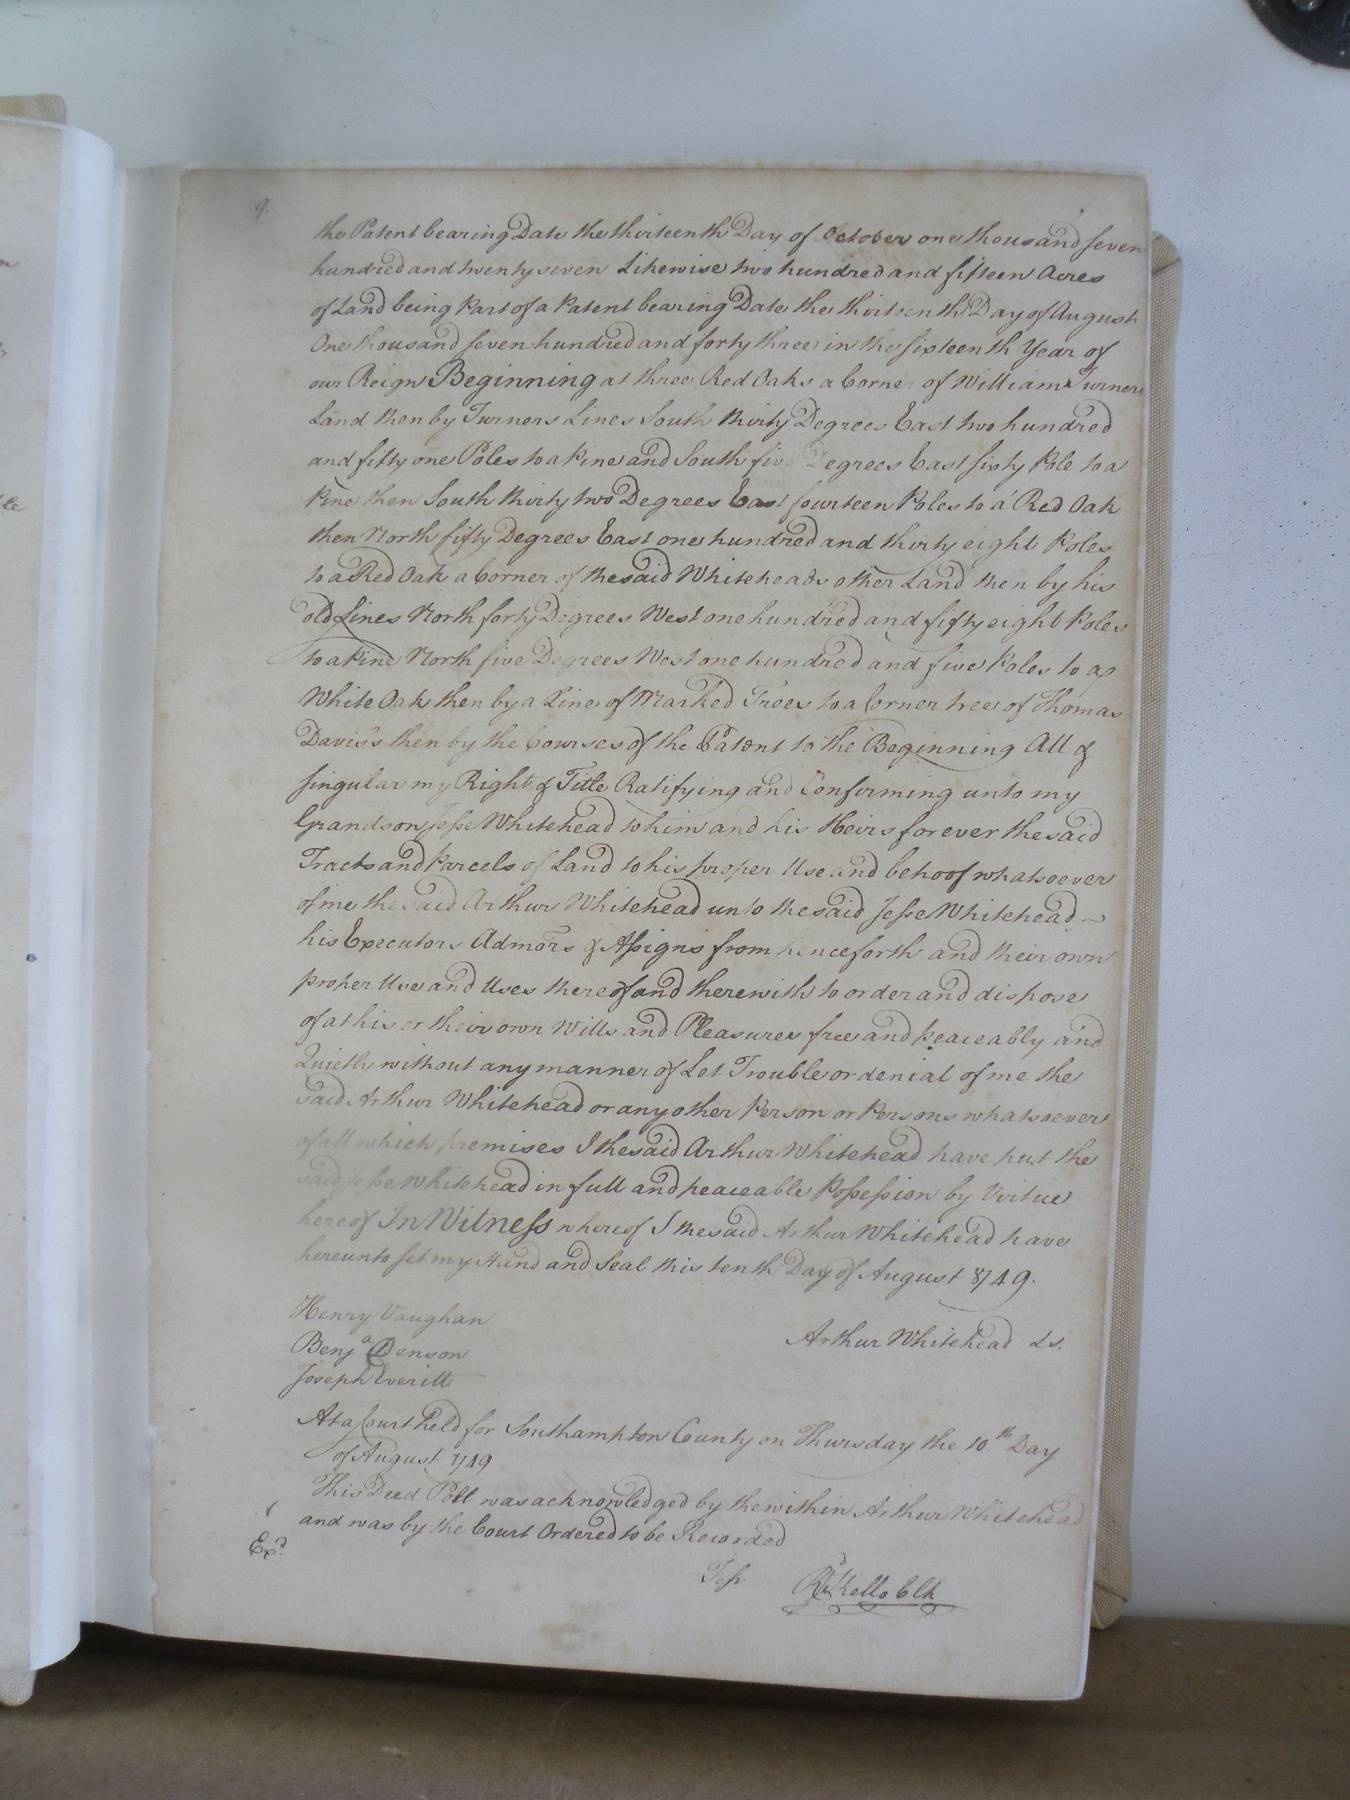 9.
the Patent bearing Date the thirteenth Day of October one thousand seven
hundred and twenty seven Likewise two hundred and fifteen Acres
of Land being Part of a Patent bearing Date the thirteenth Day of August
One thousand seven hundred and forty three in the sixteenth Year of
our Reign Beginning at three Red Oaks a Corner of William Turners
Land then by Turners Lines South thirty Degrees East two hundred
and fifty one Poles to a Pine and South five Degrees East sixty Pole to a
Pine then South thirty two Degrees East fourteen Poles to a Red Oak
then North fifty Degrees East one hundred and thirty eight Poles
to a Red Oak a Corner of the said Whiteheads other Land then by his
old Lines North forty Degrees West one hundred and fifty eight Poles
to a Pine North five Degrees West one hundred and five Poles to a
White Oak then by a Line of Marked Trees to a Corner tree of Thomas
Davis's then by the Courses of the Patent to the Beginning All &
singular my Right & Title Ratifying and Conforming unto my
Grandson Jesse Whitehead to him and his Heirs forever the said
Tracts and Parcels of Land to his proper Use and behoof whatsoever
of me the said Arthur Whitehead unto the said Jesse Whitehead
his Executors Admors & Assigns from henceforth and their own
proper Use and Uses thereof and therewith to order and dispose
of at his or their own Wills and Pleasures free and peaceably and
Quietly without any manner of Let Trouble or denial of me the
said Arthur Whitehead or any other Person or Persons whatsoever
of all which premises I the said Arthur Whitehead have put the
said Jesse Whitehead in full and peaceable Possession by Virtue
hereof In Witness whereof I the said Arthur Whitehead have
hereunto set my Hand and Seal this tenth Day of August 1749.
Henry Vaughan
Arthur Whitehead LS.
Benja Denson
Joseph Everitt
At a Court held for Southampton County on Thursday the 10th Day
of August 1749
This Deed Poll was acknowledged by the within Arthur Whitehead
and was by the Court Ordered to be Recorded
Exd.
Test Rd Kello Clk